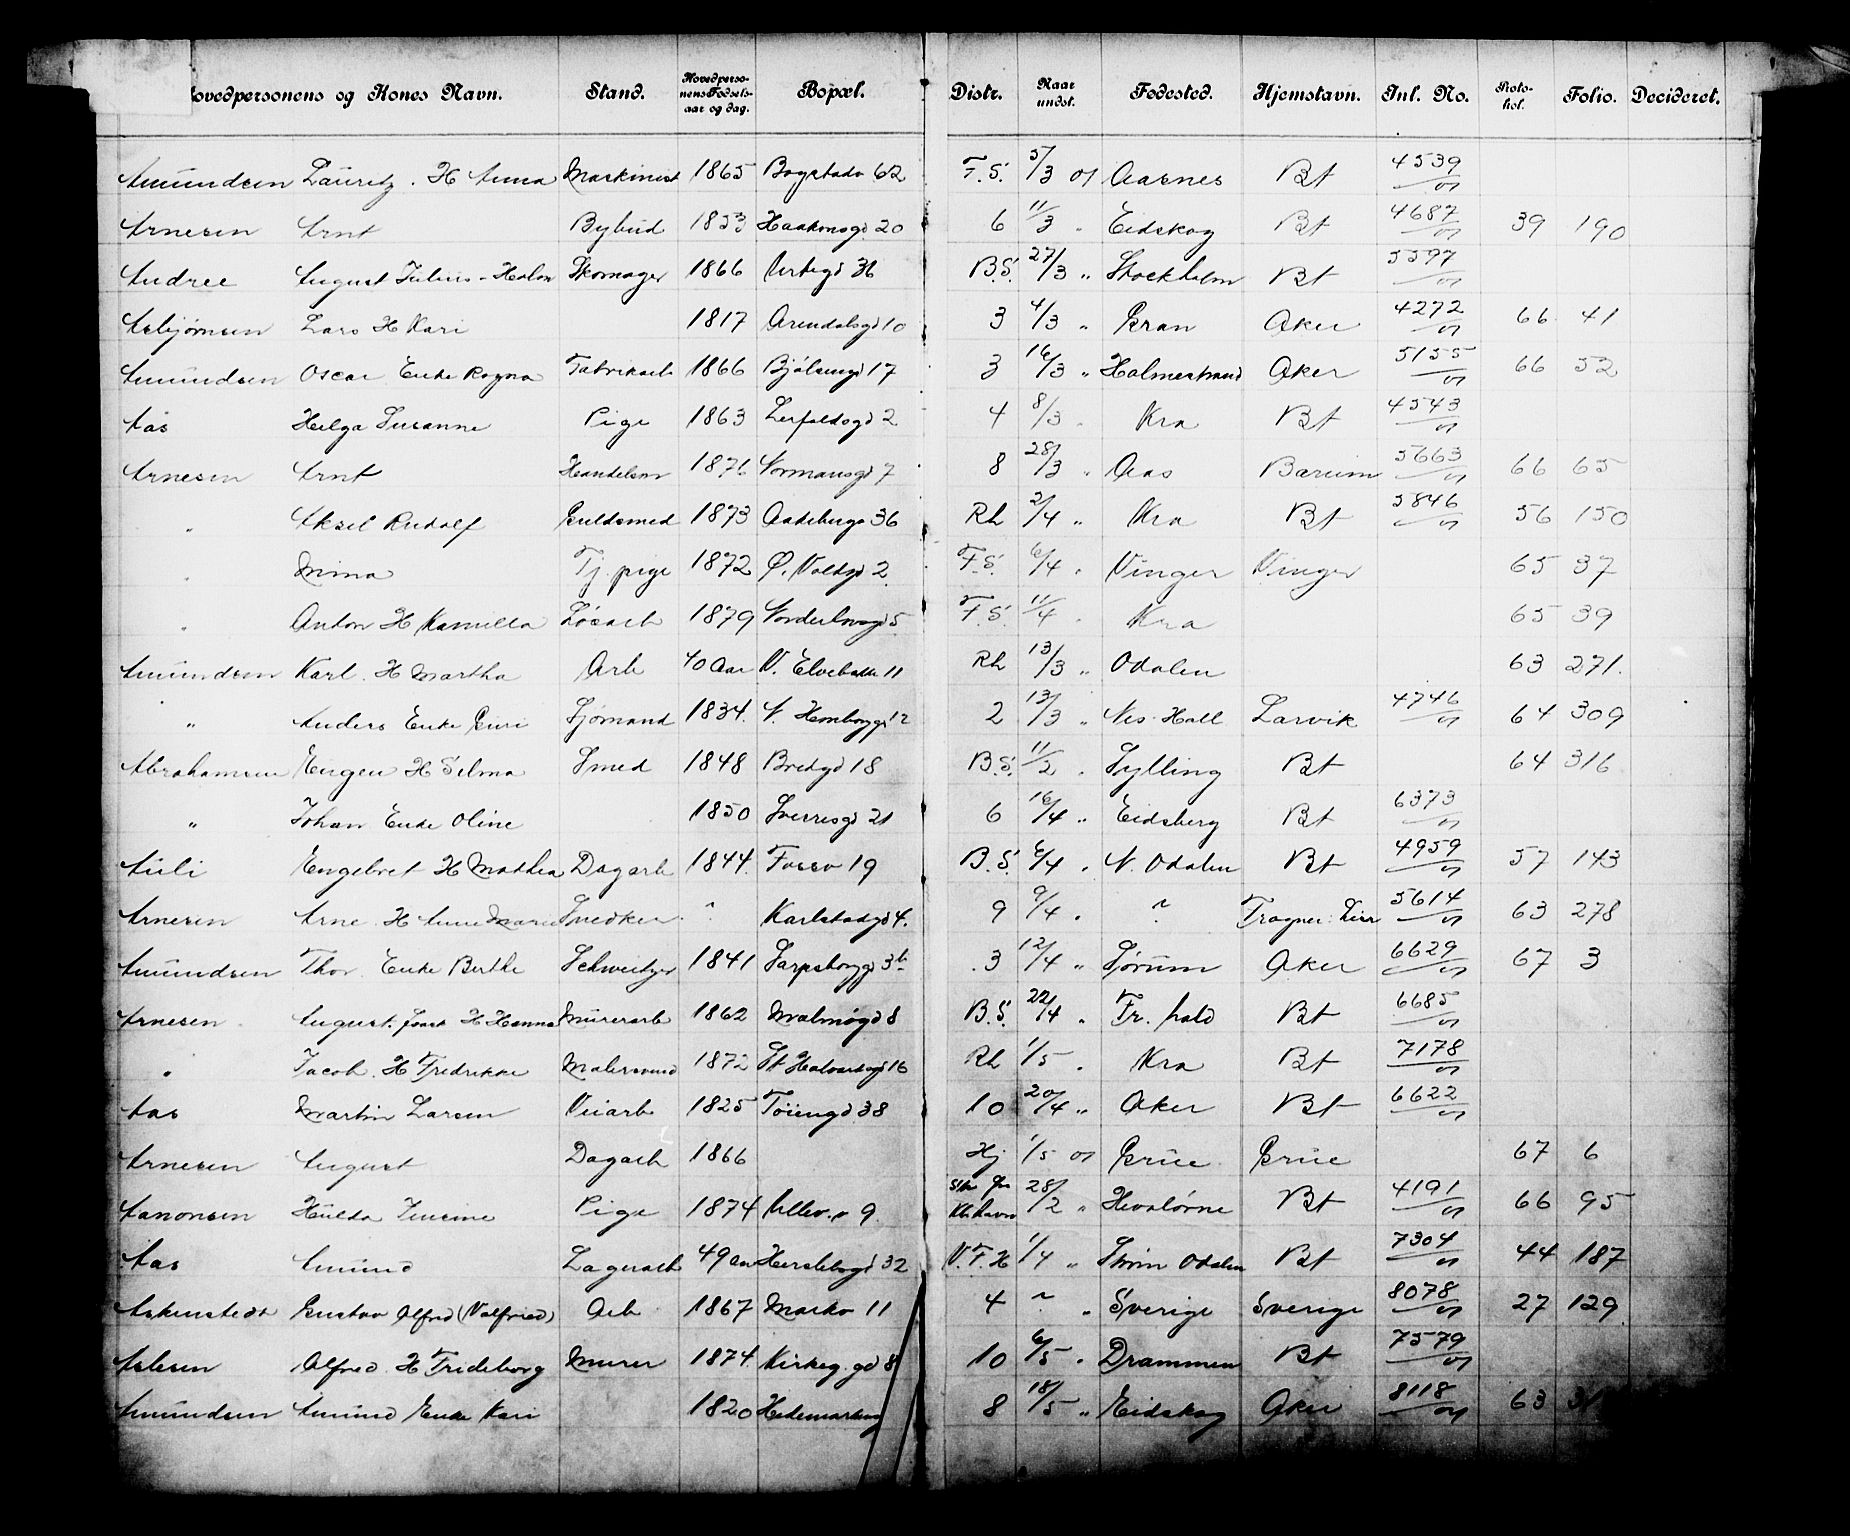 ovedpersonens og Kones Navn. Stand. Hovedperso-nens Fødsels-aar og dag. Bopæl. Distr. Naar undst. Fødested. Hjemstavn. Inl. No. Proto-kol. Folio. Decideret.
Amundsen Lauritz. H Anna Maskinist 1865 Bogstadv 62 F.S. 5/3 01 Aasnes Bt 4539/01
Arnesen Arnt Bybud 1853 Haakonsgd 20 6 11/3 " Eidskog Bt 4687/01 39 190
Andree August Julius - Hulda Skomager 1866 Urtegd 36 B.S. 27/3 " Stockholm Bt 5597/01
Asbjørnsen Lars H Kari 1817 Arendalsgd 10 3 4/3 " Gran Aker 4272/01 66 41
Amundsen Oscar Enke Ragna Fabrikarb 1866 Bjølsengd 17 3 16/3 " Holmestrand Aker 5155/01 66 52
Aas Helga Susanne Pige 1863 Lerfaldsgd 2 4 8/3 " Kra Bt 4543/01
Arnesen Arnt Handelsm 1876 Normansgd 7 8 28/3 " Aas Bærum 5663/01 66 65
" Aksel Rudolf Guldsmed 1873 Aadebergv 36 Rh 2/4 " Kra Bt 5846/01 56 150
" Mina Tj. pige 1872 Ø. Voldgd 2 F.S. 6/4 " Vinger Vinger 65 37
" Anton H Kamilla Løsarb 1879 Norderhovgd 5 F.S. 11/4 " Kra 65 39
Amundsen Karl. H Martha Arb 40 Aar N. Elvebakke 11 Rh 13/3 " Odalen 63 271.
" Anders Enke Guri Sjømand 1834. N. Hamboggd 12 2 13/3 " Nes Hall Larvik 4746/01 64 309
Abrahamsen Eugen H Selma Smed 1848 Bredgd 18 B.S. 11/2 " Sylling Bt 64 316
" Johan Enke Oline 1850 Sverresgd 21 6 16/4 " Eidsberg Bt 6373/01
Auli Engebret H Mathea Dagarb 1844. Fossv 19 B.S. 6/4 " N. Odalen Bt 4959/01 57 143
Arnesen Arne. H Anne Marie Snedker " Karlstadgd 4. 9 9/4 " " Frogner: Lier 5614/01 63 278
Amundsen Thor. Enke Berthe Schweitzer 1841 Sarpsborggd 3b 3 12/4 " Sørum Aker 6629/01 67 3
Arnesen August. H Hanna Murerarb 1862 Malmøgd 8 B.S. 22/4 " Fr. hald Bt 6685/01
" Jacob. H Fredrikke Malersvend 1872 St Halvardsgd 16 Rh 1/5 " Kra Bt 7178/01
Aas Martin Larsen Veiarb 1825 Tøiengd 38 10 20/4 " Aker Bt 6622/01
Arnesen August Dagarb 1866 Hj 1/5 01 Grue Grue 67 6
Aanonsen Hulda Pige 1874 Ullev. v 9 28/2 " Hvaløerne Bt 4191/01 66 95
Aas Amund Lagerarb 49 aar Herslebsgd 32 V.F.H 1/4 " Strøm Odalen Bt 7304/01 44 187
Askenstedt Gustav Alfred (Valfried) Arb 1867 Markv 11 4 " " Sverige Sverige 8078/01 27 129
Aslesen Alfred. H Frideborg Murer 1874. Kirkeg. gd 8 10 6/5 " Drammen Bt 7579/01
Amundsen Amund Enke Kari 1820 Hedemarksg 8 18/5 " Eidskog Aker 8118/01 63